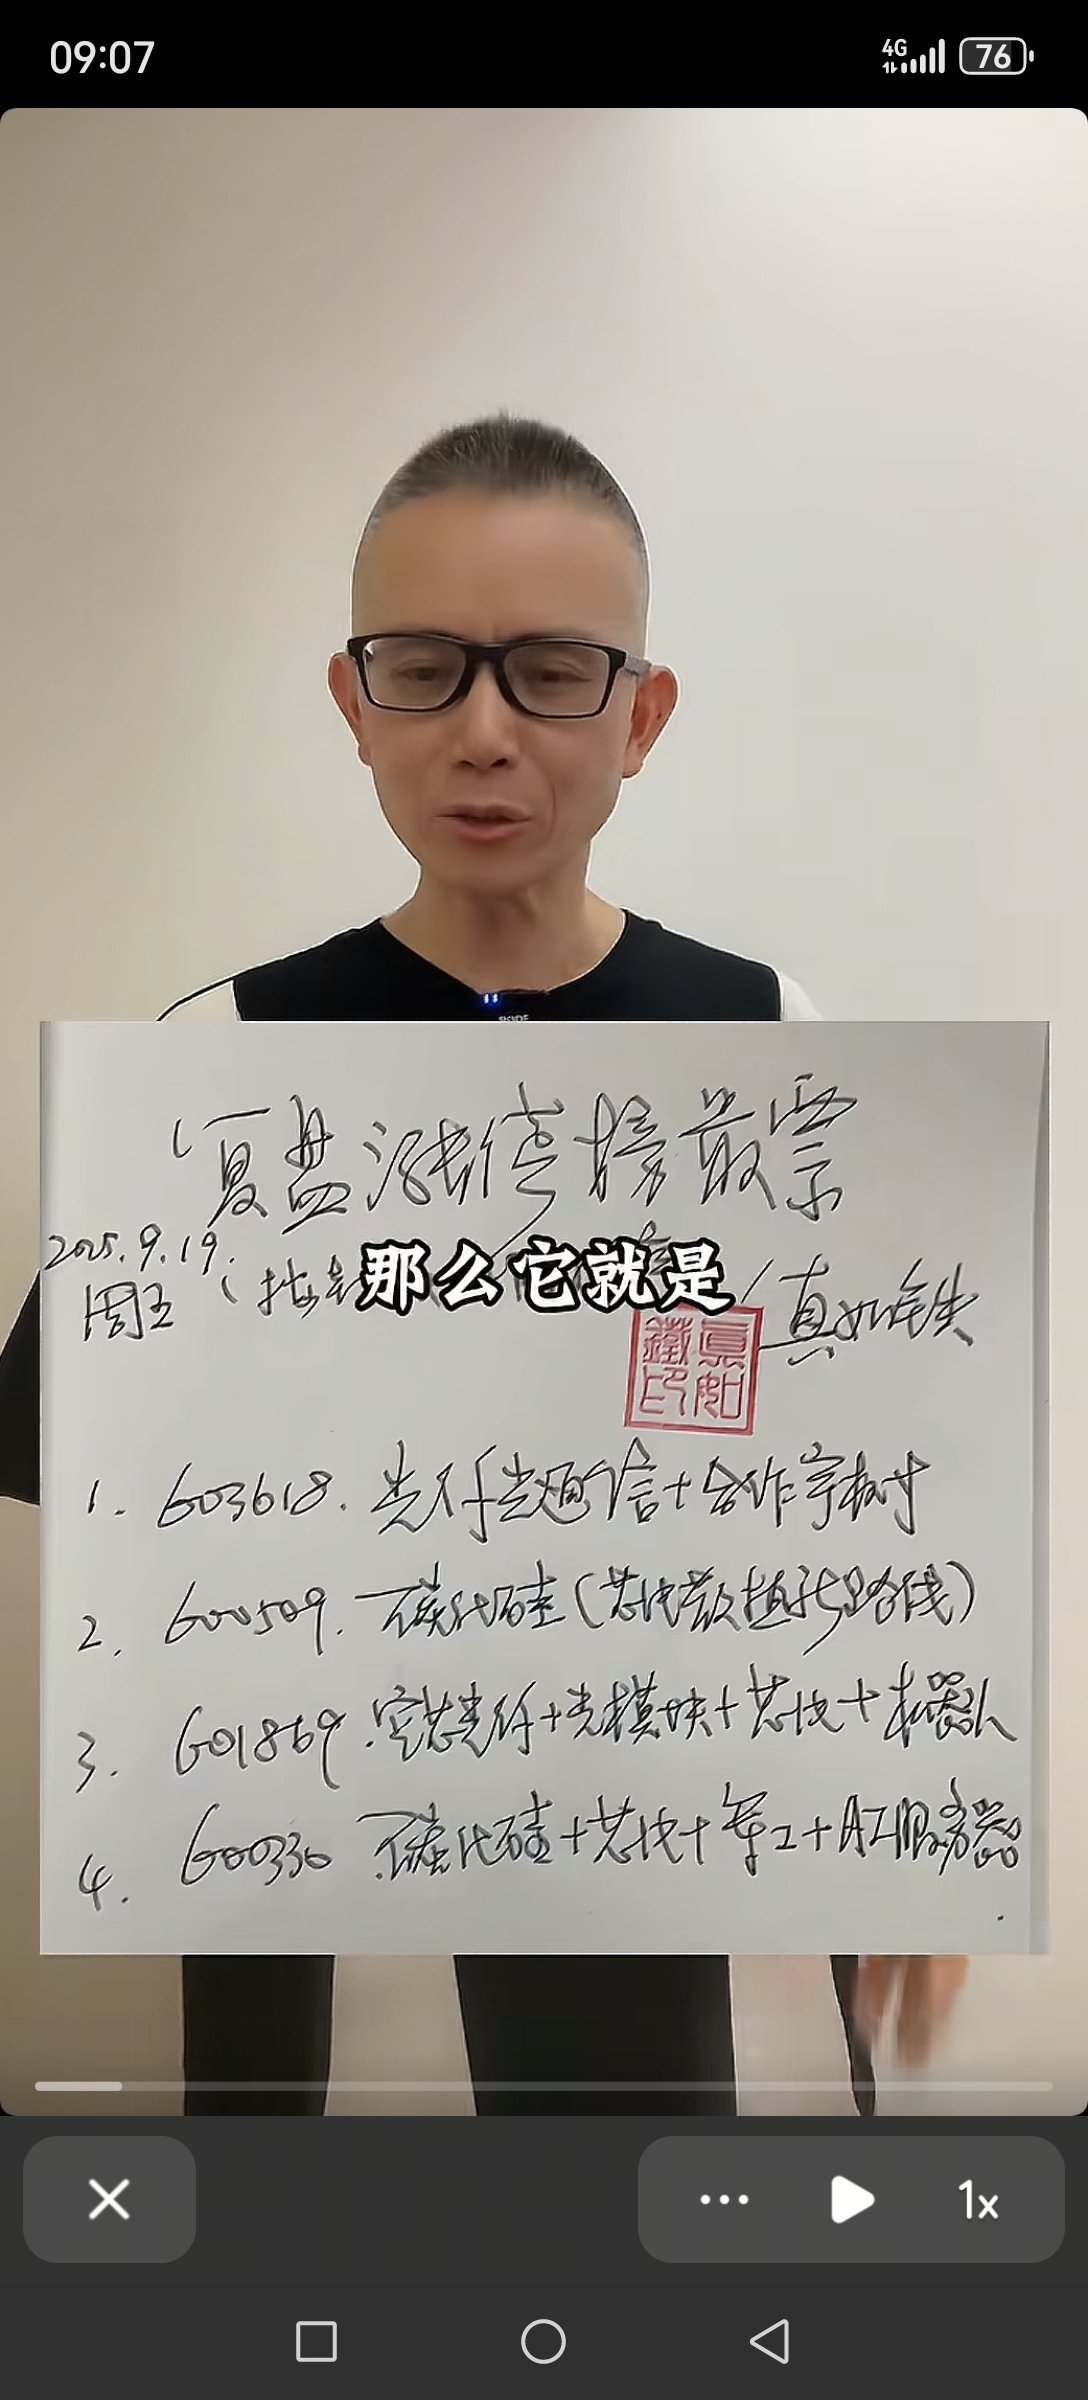 09:07
4G
76
复盘涨停榜最票
2025.9.19.
周五
那么它就是
真如铁
鐵真
印如
1. 603618. 光纤光通信+合作宇树
2. 600509. 碳化硅(芯片散热新路线)
3. 601869. 空芯光纤+光模块+芯片+机器人
4. 600330 碳化硅+芯片+军工+AI服务器
1x